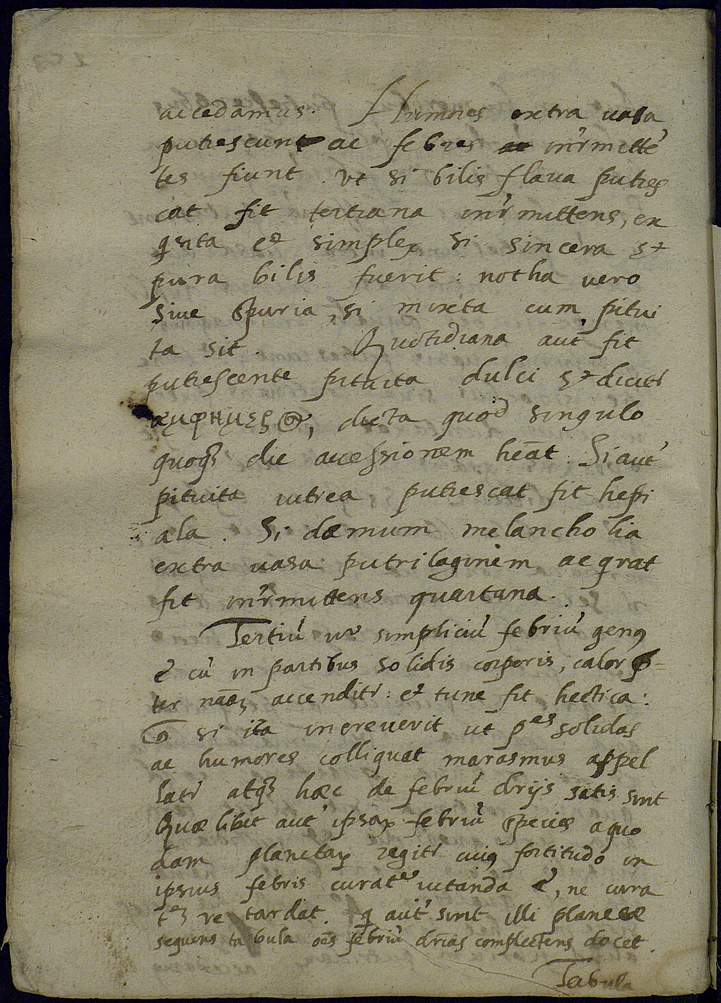 accedamus. Humores extra uasa
putrescunt ac febres intr̃mittẽ
tes fiunt. vt si bilis flaua putres
cat fit tertiana intr̃mittens, ex
qsita et simplex si sincera et
pura bilis fuerit: notha uero
siue spuria, si mixta cum pitui
ta sit. Quotidiana aut̃ fit
putrescente pituita dulci et dicitr̃
dicta quod singulo
quoqз die accessionem hẽat. Si aut̃
pituita vitrea putrescat fit hepi
ala. Si dæmum melancholia
extra uasa putrilaginem acqrat
fit intr̃mittens quartana.
Tertiũ vr̃ simpliciũ febriũ genꝯ
ẽ cũ in partibus solidis corporis, calor
ter accenditr̃: et tunc fit hectica:
si ita increuerit ut p̃es solidas
ac humores colliquat marasmus appel
latr̃ atqз hæc de febriũ dr̃ijs satis sint
Quælibet aut̃ ipsaꝝ febriũ species a quo
dam planetaꝝ regitr̃ cuiꝯ fortitudo in
ipsius febris curatẽ uitanda ẽ, ne cura
re tardat. q aut̃ sunt illi planetæ
sequens tabula oẽs febriũ dr̃ias complectens docet.
Tabula